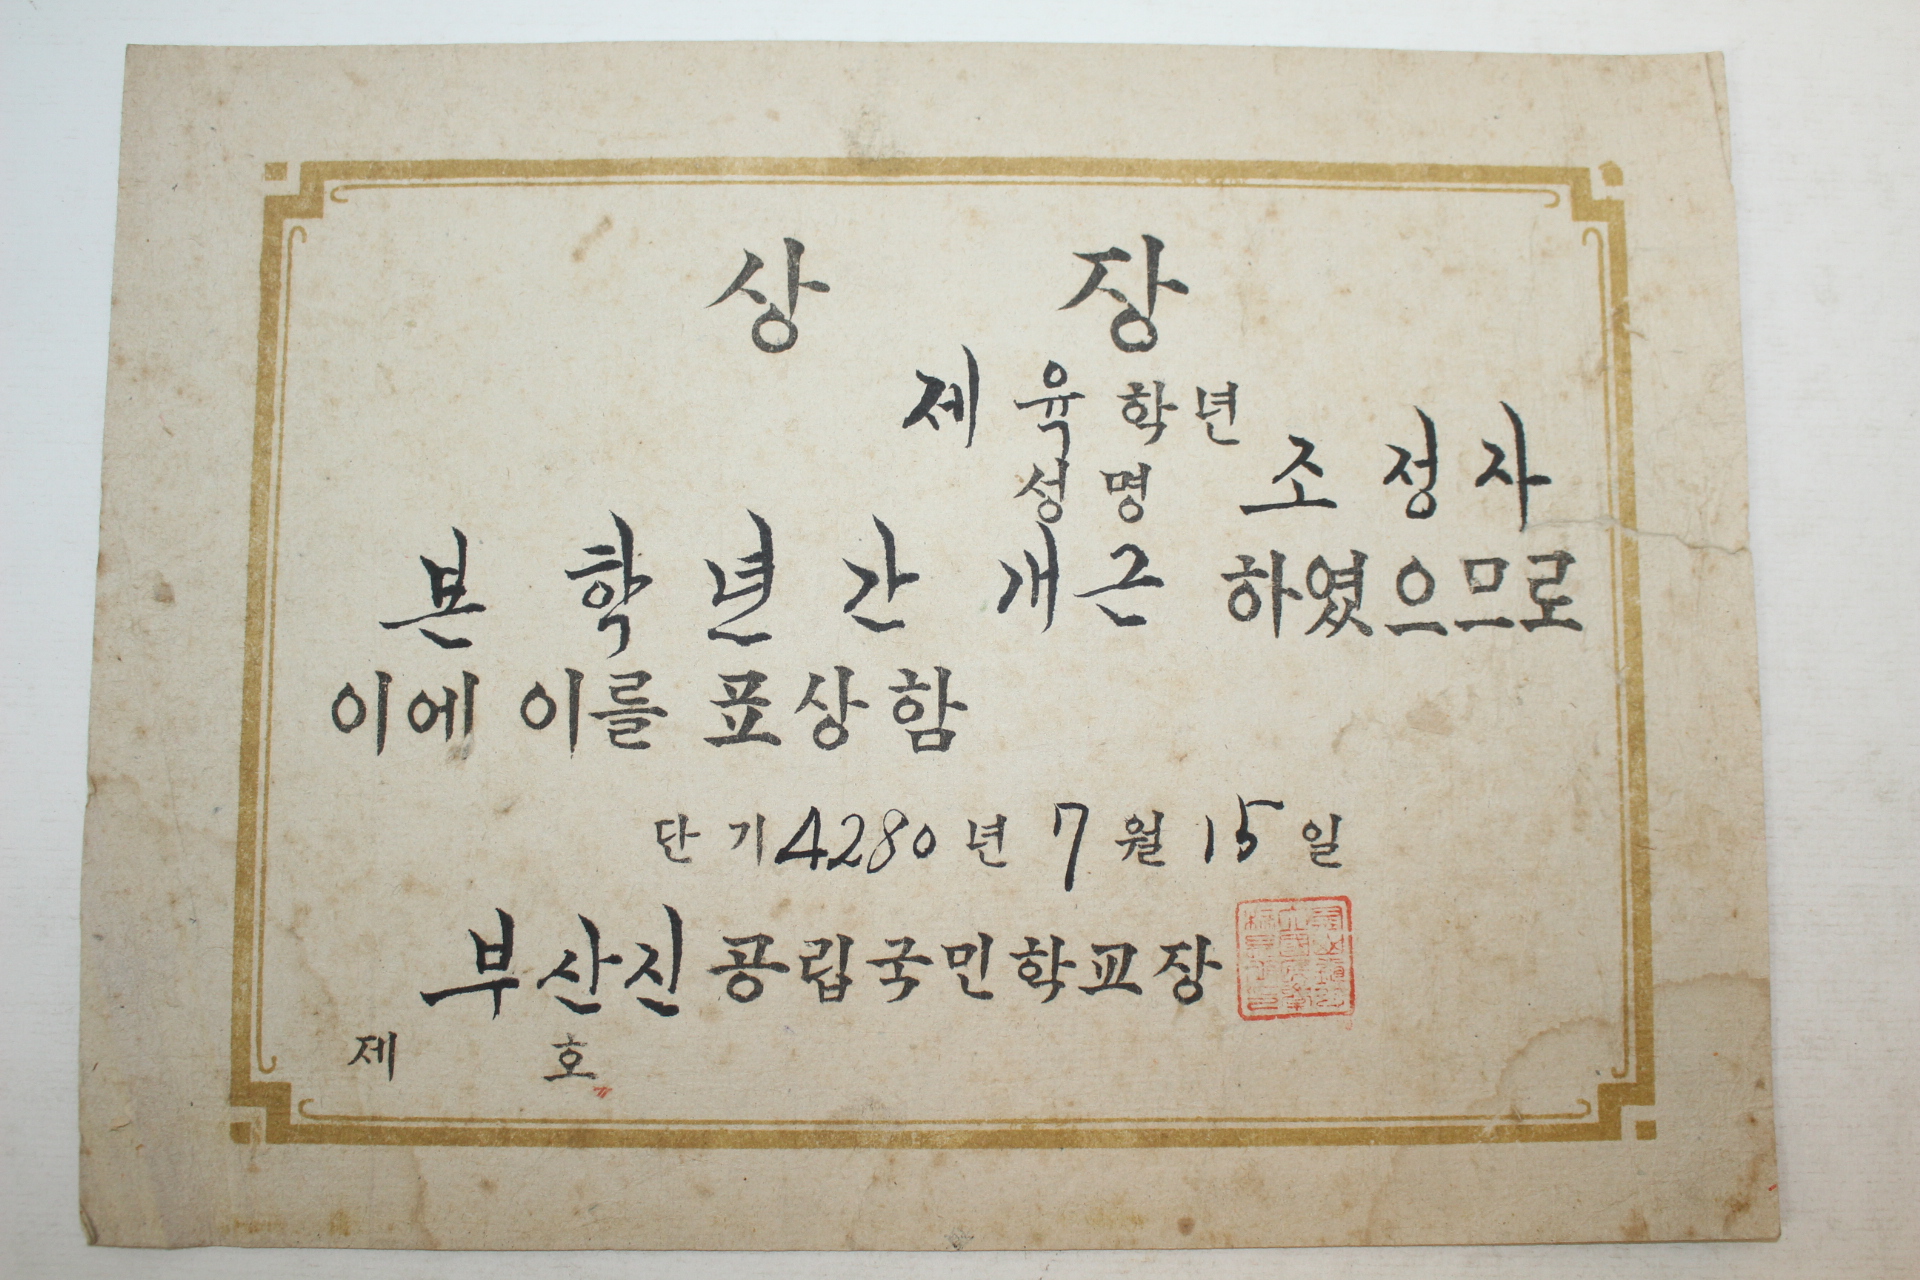 상 장
제 육 학년
성 명 조 정 자
본 학 년 간 개근 하였으므로
이에 이를 표상함
단 기 4280 년 7 월 15 일
부산진 공립국민학교장
제 호